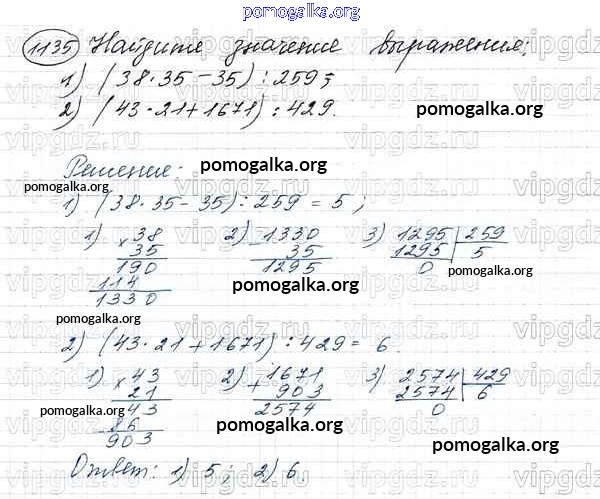 pomogalka.org
1135 Найдите значение выражения:
1) (38·35-35):259;
2) (43·21+1671):429.
pomogalka.org
Решение:
pomogalka.org
pomogalka.org
1) (38·35-35):259=5;
1) × 38
35
190
114
1330
2) - 1330
35
1295
3) 1295 | 259
1295 | 5
0
pomogalka.org
pomogalka.org
pomogalka.org
2) (43·21+1671):429=6.
1) × 43
21
43
86
903
2) + 1671
903
2574
3) 2574 | 429
2574 | 6
0
pomogalka.org
pomogalka.org
pomogalka.org
Ответ: 1) 5; 2) 6.